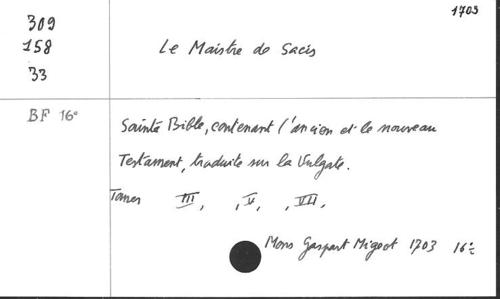 1703
309
158
33
Le Maistre de Sacis
BF 16°
Sainte Bible, contenant l'ancien et le nouveau
Testament, traduite sur la Vulgate.
Tomes III, , V, , VII,
Mons Gaspart Migeot 1703 16°